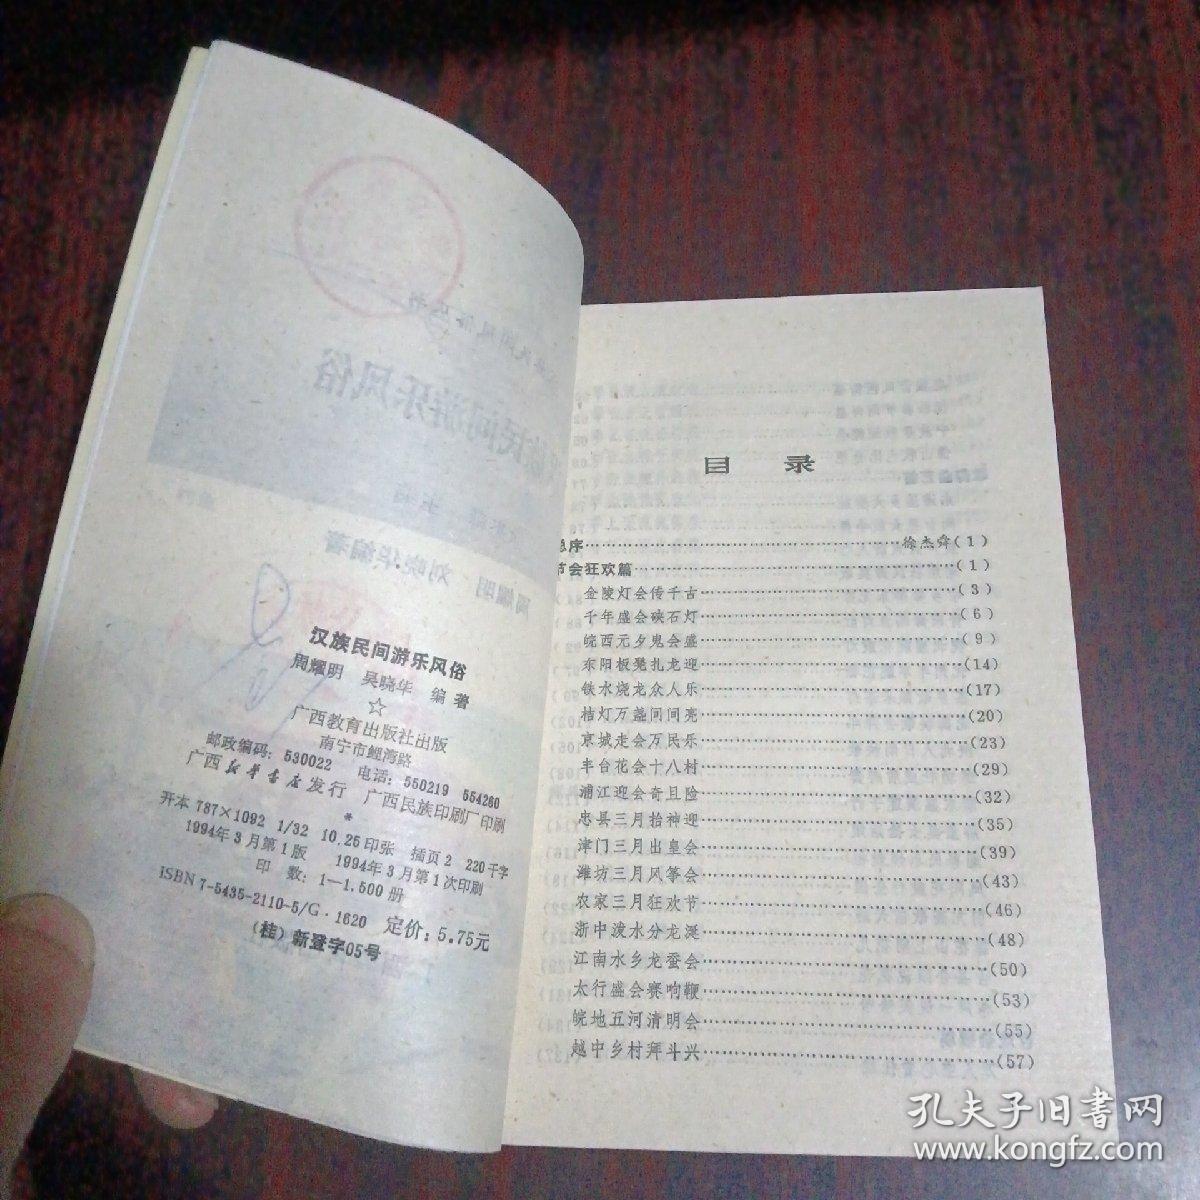 汉族民间游乐风俗
周耀明 吴晓华 编著
☆
广西教育出版社出版
南宁市鲤湾路
邮政编码：530022 电话：550219 554260
广西新华书店发行 广西民族印刷厂印刷
*
开本 787×1092 1/32 10.25印张 插页2 220千字
1994年3月第1版 1994年3月第1次印刷
印数：1—1,500册
ISBN 7-5435-2110-5/G·1620 定价：5.75元
(桂)新登字05号
目录
总序……徐杰舜(1)
节会狂欢篇……(1)
金陵灯会传千古……(3)
千年盛会硖石灯……(6)
皖西元夕鬼会盛……(9)
东阳板凳扎龙迎……(14)
铁水烧龙众人乐……(17)
桔灯万盏间间亮……(20)
京城走会万民乐……(23)
丰台花会十八村……(29)
浦江迎会奇且险……(32)
忠县三月抬神迎……(35)
津门三月出皇会……(39)
潍坊三月风筝会……(43)
农家三月狂欢节……(46)
浙中泼水分龙涎……(48)
江南水乡龙蚕会……(50)
太行盛会赛响鞭……(53)
皖地五河清明会……(55)
越中乡村拜斗兴……(57)
孔夫子旧书网
www.kongfz.com